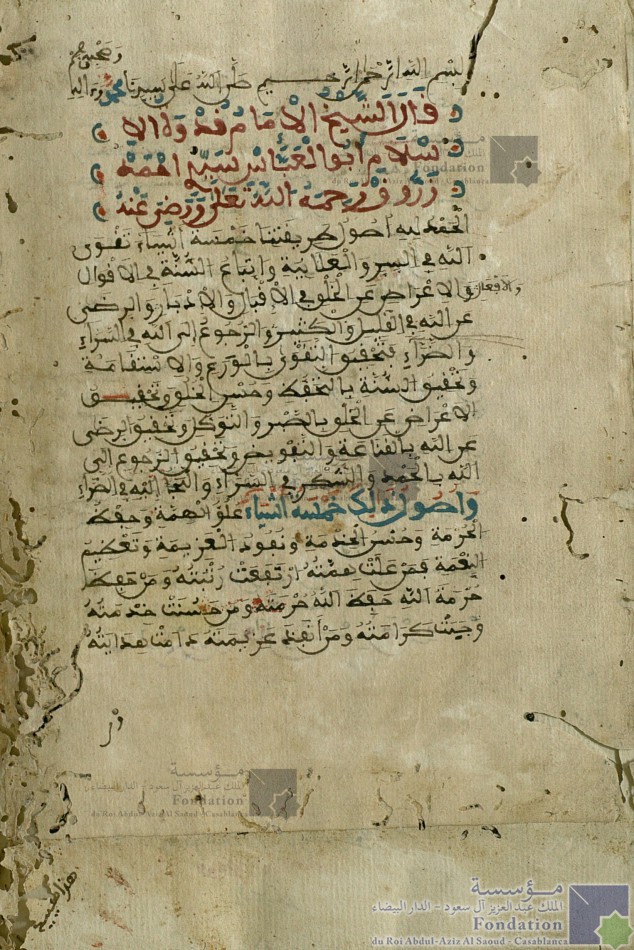 وصحبه
بسم الله الرحمن الرحيم صلى الله على سيدنا محمد وءاله
قال الشيخ الامام قدوة الا
سلام ابو العباس سيدي احمد
زروق رحمه الله تعلى ورضي عنه
الحمد لله اصول طريقتنا خمسة اشياء تقوى
الله في السر والعلانية واتباع السنة في الاقوال
والافعال
والاعراض عن الخلق في الاقبال والادبار والرضى
عن الله في القليل والكثير والرجوع الى الله في السراء
والضراء فتحقيق التقوى بالورع والاستقامة
وتحقيق السنة بالتحفظ وحسن الخلق وتحقيق
الاعراض عن الخلق بالصبر والتوكل وتحقيق الرضى
عن الله بالقناعة والتفويض وتحقيق الرجوع الى
الله بالحمد والشكر في السراء والتجا اليه في الضراء
واصول ذلك خمسة اشياء علو الهمة وحفظ
الحرمة وحسن الخدمة ونفوذ العزيمة وتعظيم
النعمة فمن علت همته ارتفعت رتبته ومن حفظ
حرمة الله حفظ الله حرمته ومن حسنت خدمته
وجبت كرامته ومن انفذ عزيمته دامت هدايته
مؤسسة
الملك عبد العزيز آل سعود - الدار البيضاء
Fondation
du Roi Abdul-Aziz Al Saoud - Casablanca
مؤسسة
الملك عبد العزيز آل سعود - الدار البيضاء
Fondation
du Roi Abdul-Aziz Al Saoud - Casablanca